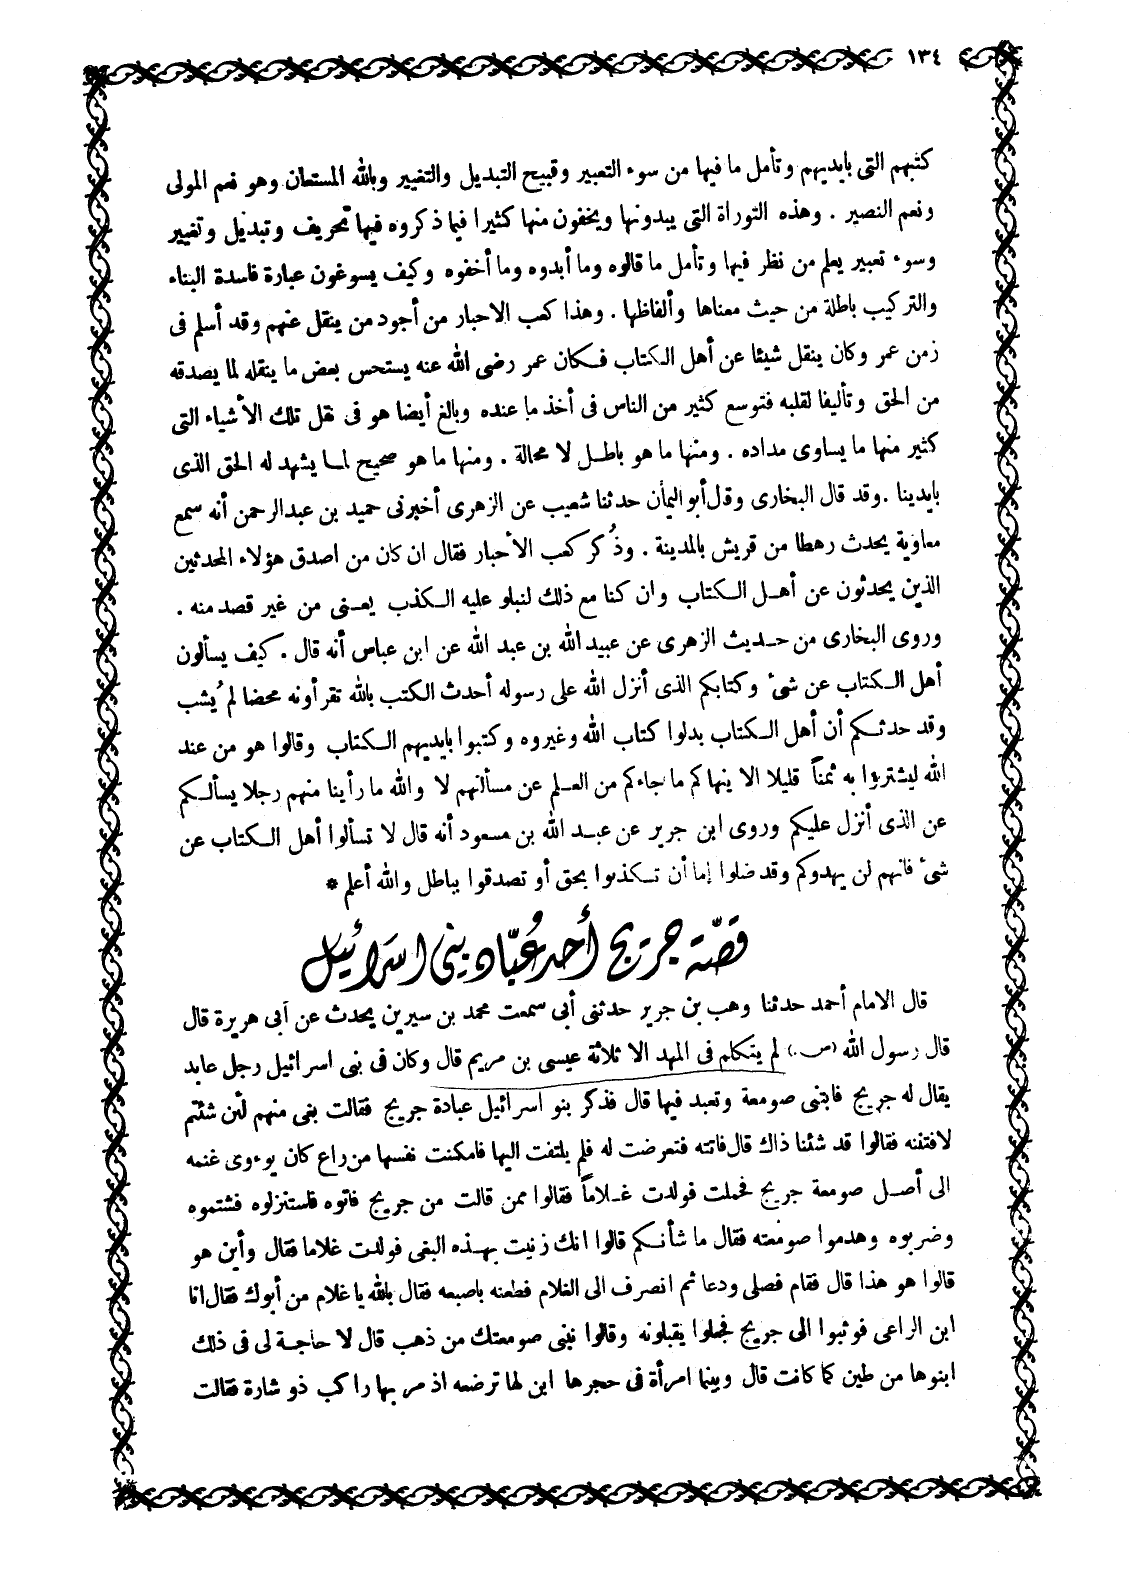 ١٣٤
كتبهم التى بايديهم وتأمل ما فيها من سوء التعبير وقبيح التبديل والتغيير وبالله المستعان وهو نعم المولى
ونعم النصير . وهذه التوراة التى يبدونها ويخفون منها كثيرا فيما ذكروه فيها تحريف وتبديل وتغيير
وسوء تعبير يعلم من نظر فيها وتأمل ما قالوه وما أبدوه وما أخفوه وكيف يسوغون عبارة فاسدة البناء
والتركيب باطلة من حيث معناها وألفاظها . وهذا كعب الاحبار من أجود من ينقل عنهم وقد أسلم فى
زمن عمر وكان ينقل شيئا عن أهل الكتاب فكان عمر رضى الله عنه يستحس بعض ما ينقله لما يصدقه
من الحق وتأليفا لقلبه فتوسع كثير من الناس فى أخذ ما عنده وبالغ أيضا هو فى نقل تلك الأشياء التى
كثير منها ما يساوى مداده . ومنها ما هو باطل لا محالة . ومنها ما هو صحيح لما يشهد له الحق الذى
بايدينا . وقد قال البخارى وقل أبو اليمان حدثنا شعيب عن الزهرى أخبرنى حميد بن عبدالرحمن أنه سمع
معاوية يحدث رهطا من قريش بالمدينة . وذُكر كعب الأحبار فقال ان كان من اصدق هؤلاء المحدثين
الذين يحدثون عن أهل الكتاب وان كنا مع ذلك لنبلو عليه الكذب يعنى من غير قصد منه .
وروى البخارى من حديث الزهرى عن عبيد الله بن عبد الله عن ابن عباس أنه قال . كيف يسألون
أهل الكتاب عن شئ وكتابكم الذى أنزل الله على رسوله أحدث الكتب بالله تقرأونه محضا لم يُشب
وقد حدثكم أن أهل الكتاب بدلوا كتاب الله وغيروه وكتبوا بايديهم الكتاب وقالوا هو من عند
الله ليشتروا به ثمناً قليلا الا ينهاكم ما جاءكم من العلم عن مسألتهم لا والله ما رأينا منهم رجلا يسألكم
عن الذى أنزل عليكم وروى ابن جرير عن عبد الله بن مسعود أنه قال لا تسألوا أهل الكتاب عن
شئ فانهم لن يهدوكم وقد ضلوا إما أن تكذبوا بحق أو تصدقوا بباطل والله أعلم *
قصّة جريج أحد عُبّاد بنى اسرائيل
قال الامام أحمد حدثنا وهب بن جرير حدثنى أبى سمعت محمد بن سيرين يحدث عن أبى هريرة قال
قال رسول الله (س.) لم يتكلم فى المهد الا ثلاثة عيسى بن مريم قال وكان فى بنى اسرائيل رجل عابد
يقال له جريج فابتنى صومعة وتعبد فيها قال فذكر بنو اسرائيل عبادة جريج فقالت بغى منهم لئن شئتم
لافتننه فقالوا قد شئنا ذاك قال فاتته فتعرضت له فلم يلتفت اليها فامكنت نفسها من راع كان يوءوى غنمه
الى أصل صومعة جريج فحملت فولدت غلاماً فقالوا ممن قالت من جريج فاتوه فاستنزلوه فشتموه
وضربوه وهدموا صومعته فقال ما شأنكم قالوا انك زنيت بهذه البغى فولدت غلاما فقال وأين هو
قالوا هو هذا قال فقام فصلى ودعا ثم انصرف الى الغلام فطعنه باصبعه فقال بالله يا غلام من أبوك فقال انا
ابن الراعى فوثبوا الى جريج فجعلوا يقبلونه وقالوا نبنى صومعتك من ذهب قال لا حاجة لى فى ذلك
ابنوها من طين كما كانت قال وبينما امرأة فى حجرها ابن لها ترضعه اذ مر بها راكب ذو شارة فقالت